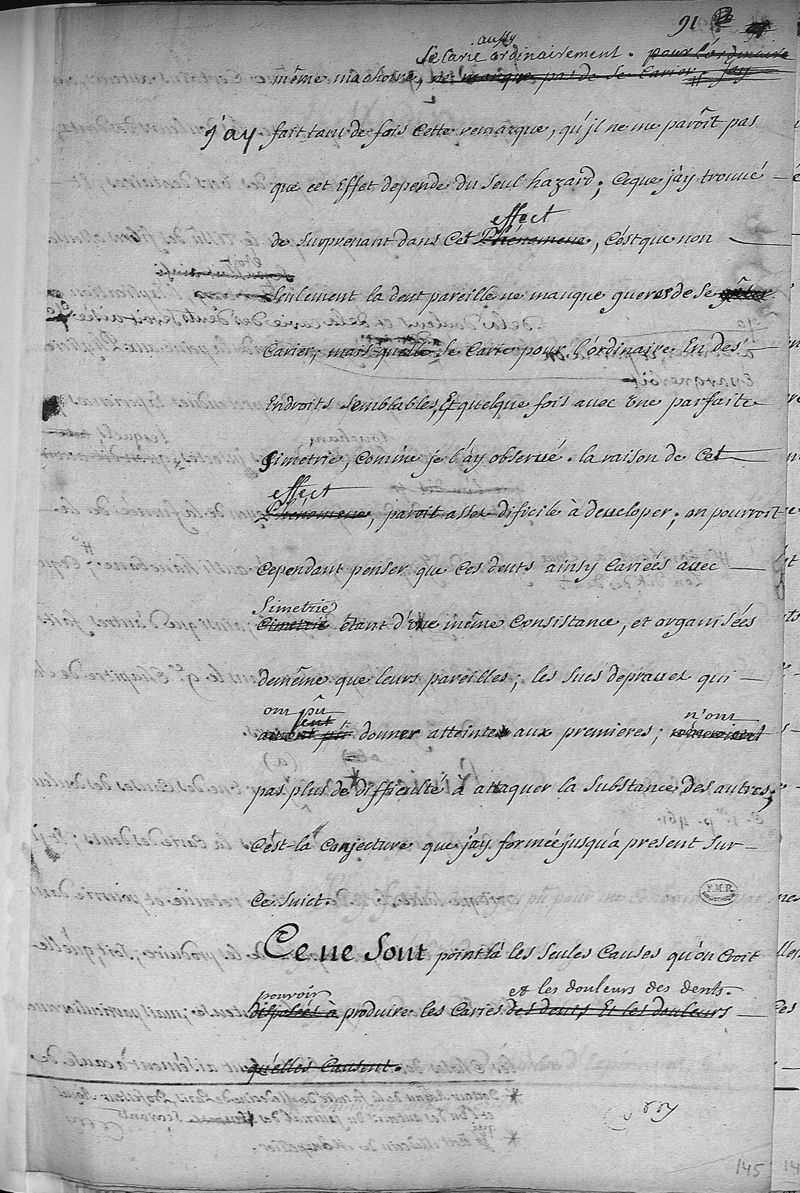 91
aussy
se carie ordinairement. pour l'ordinaire
même machoire, ne manque pas de se Carier. jay
j'ay fait tant de fois Cette remarque, qu'jl ne me parôit pas
que cet Effet depende du seul hazard; Ceque j'ay trouvé
effect
de surprenant dans Cet Phénomene, c'est que non
seulement la dent pareille ne manque gueres de se
Carier; mais quelle se Carie pour l'ordinaire En des
Endroits semblables, Et quelque fois avec Une parfaite
simetrie, comme je l'ay observé. la raison de Cet
effect
Phénomene, paroit assez dificile à developer; on pourroit
Cependant penser que ces dents ainsy Cariées avec
Simetrie
Cimetrie étant d'une même Consistance, et organisées
demême que leurs pareilles; les sucs depravet qui
ont pû n'ont
donner atteinte aux premieres;
pas plus de difficulté à attaquer la substance des autres;
C'est-là Conjecture que j'ay formée jusqu'a present sur
Ce suiet.
Ce ne sont point là les seules Causes qu'on Croit
pouvoir et les douleurs des dents.
disposées à produire les Caries des dents, Et les douleurs
qu'elles Causent.
145